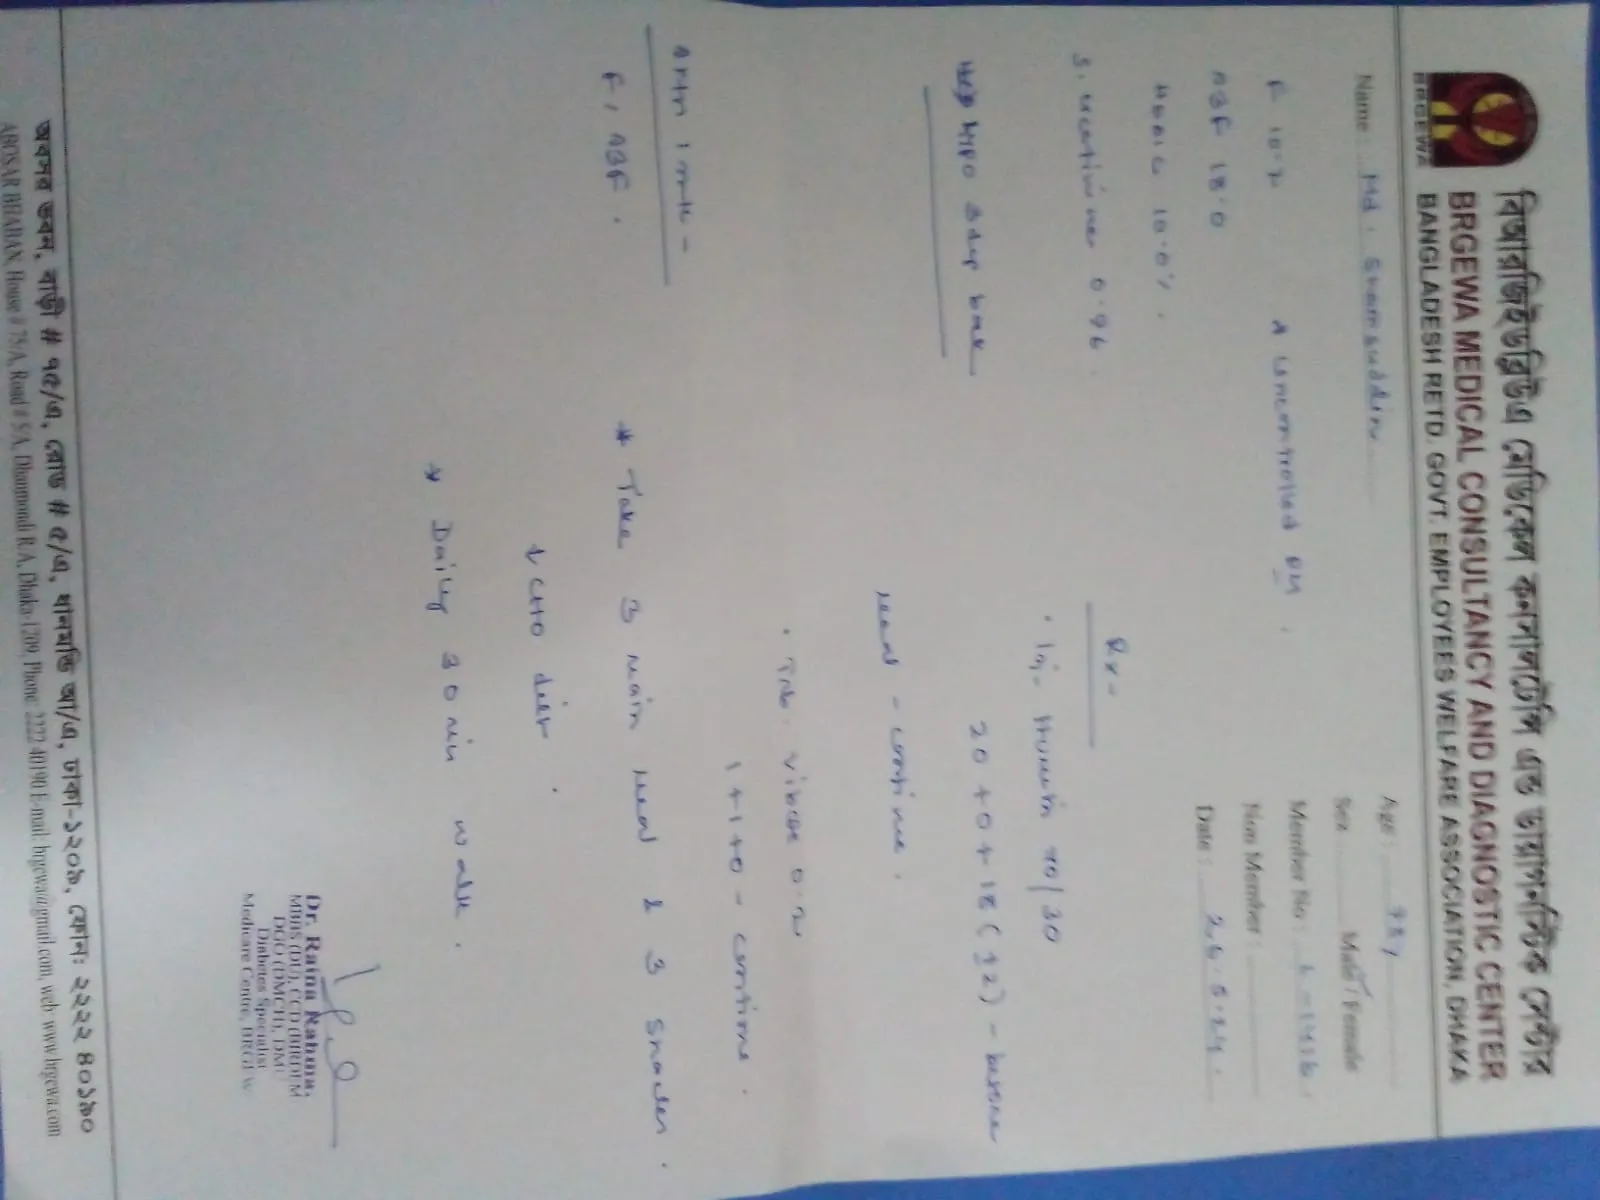 বিআরজিইডব্লিউএ মেডিকেল কনসালটেন্সি এন্ড ডায়াগনস্টিক সেন্টার
BRGEWA MEDICAL CONSULTANCY AND DIAGNOSTIC CENTER
BANGLADESH RETD. GOVT. EMPLOYEES WELFARE ASSOCIATION, DHAKA
BRGEWA
Name : Md. Shamsuddin
Age :
Sex Male / Female
Member No :
Non Member :
Date :
F 10.2
A uncontrolled DM
ABF 18.0
HbA1c 10.0%.
S. creatinine 0.96.
Rx-
Inj. Humulin 70/30
20 + 0 + 18 (12) - before
meal - continue.
Hypo step back
Tab. 0.2
1+1+0 - continue.
After 1 mth -
F, ABF.
* Take 3 main meal & 3 snacks.
↓ CHO diet.
* Daily 30 min walk.
Dr. Raina Rahma,
MBBS (DU), CCD (BIRDEM
DGO (DMCH), DMU
Diabetes Specialist
Medicare Centre, BRGEW
অবসর ভবন, বাড়ী # ৭৫/এ, রোড # ৫/এ, ধানমন্ডি আ/এ, ঢাকা-১২০৯, ফোনঃ ২২২২ ৪০১৯০
ABOSAR BHABAN, House # 75/A, Road # 5A, Dhanmondi R.A, Dhaka-1209, Phone: 2222 40190 E-mail: brgewa@gmail.com, web: www.brgewa.com